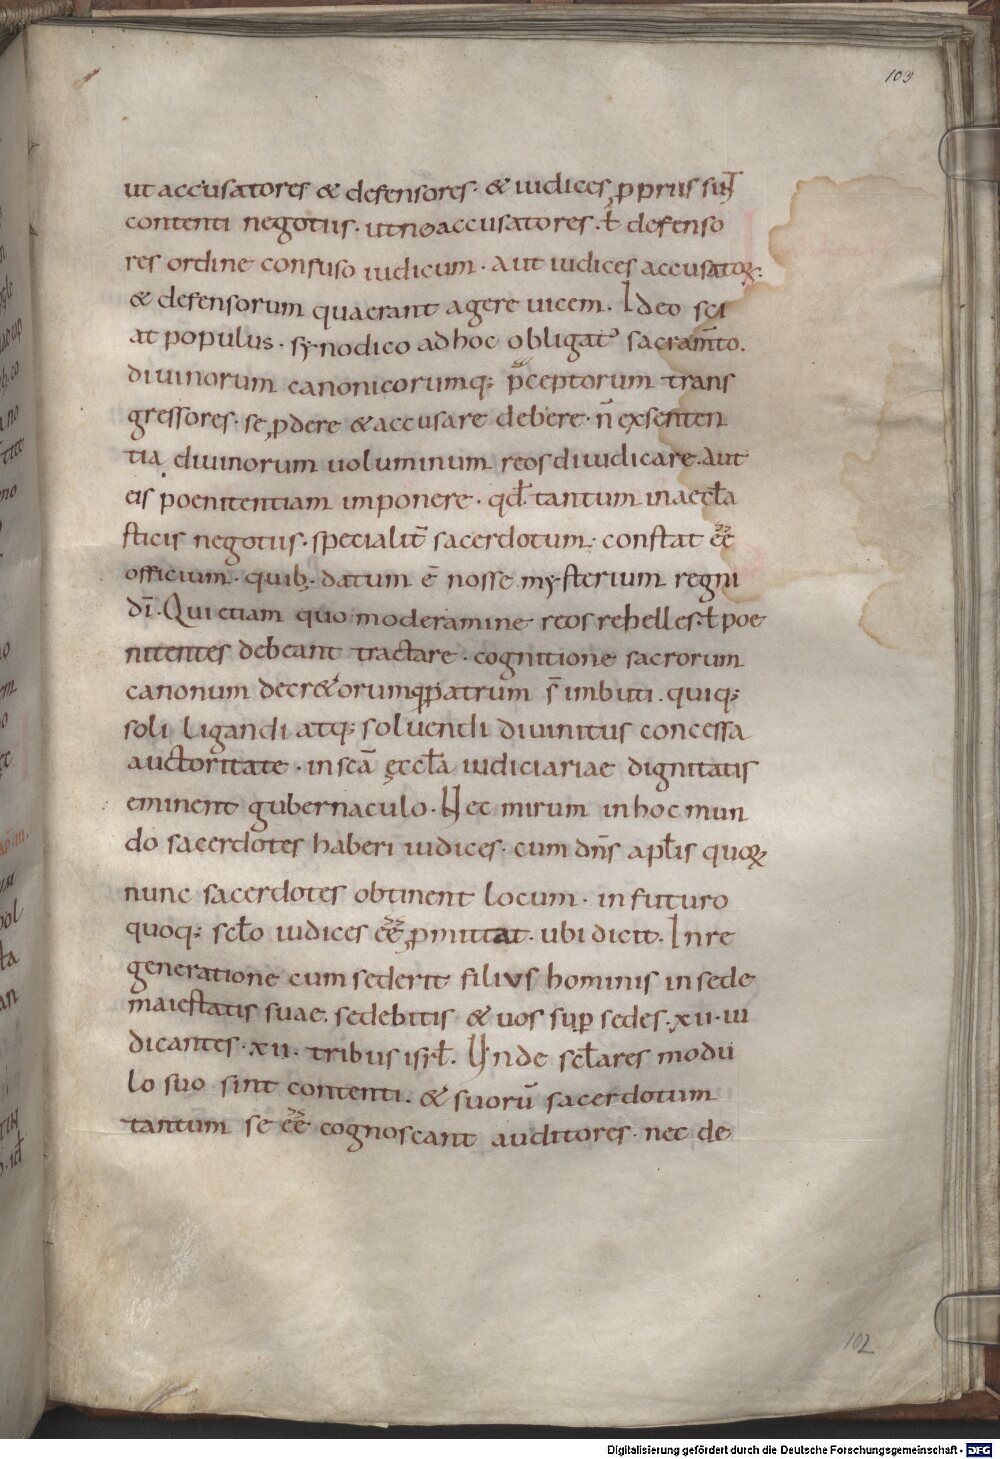 103
ut accusatores & defensores · & iudices ꝓprus sunt
contenti negotus · ut nõ accusatores · ł defenso
res ordine confuso iudicum · aut iudices accusatoꝝ ·
& defensorum quaerant agere uicem . Ideo sci
at populus · synodico ad hoc obligatꝰ sacram̄to.
diuinorum canonicorumq; p̄ceptorum trans
gressores · se ꝓdere & accusare debere · n̄ ex senten
tia diuinorum uoluminum reos diiudicare · aut
eis poenitentiam imponere · qd̄ tantum in aeccła
sticis negotiis · specialit̄ sacerdotum · constat ēē
officium · quib; datum ē nosse mysterium regni
dī · Qui etiam quo moderamine reos rebelles · ł poe
nitentes debeant tractare · cognitione sacrorum
canonum decr&orumq; patrum s̄ imbuti . quiq;
soli ligandi atq; soluendi diuinitus concessa
auctoritate · in scā ęccła iudiciariae dignitatis
eminent gubernaculo · Nec mirum in hoc mun
do sacerdotes haberi iudices · cum dn̄s apłis quoꝝ
nunc sacerdotes obtinent locum · in futuro
quoq; scło iudices ēē ꝑmittat · ubi dicit · In re
generatione cum sederit filius hominis in sede
maiestatis suae . sedebitis & uos suꝑ sedes · xii · iu
dicantes · xii · tribus isrł . Unde scłares modu
lo suo sint contenti . & suorū sacerdotum
tantum se ēē cognoscant auditores · nec de
102
Digitalisierung gefördert durch die Deutsche Forschungsgemeinschaft - DFG